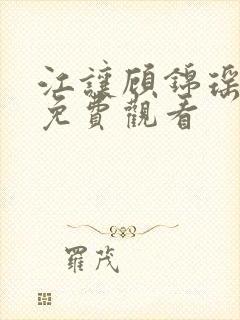 江讓顧錦瑤
免費觀看
羅茂